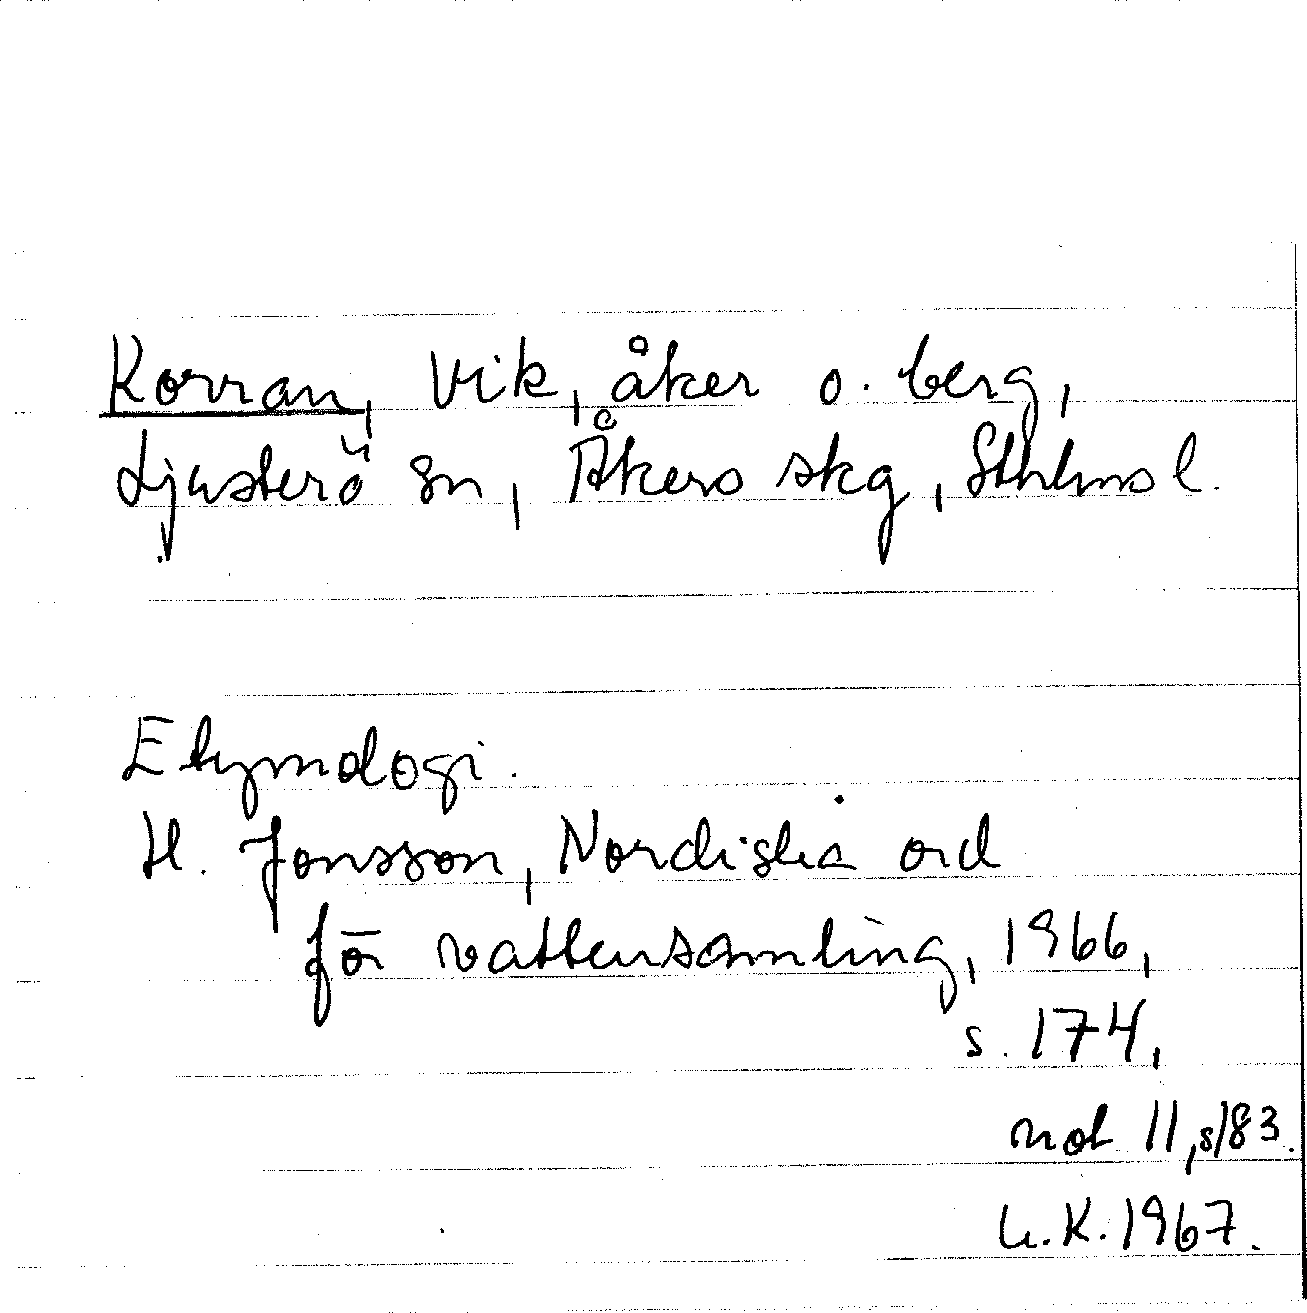 Korran, vik, åker o. berg,
Ljusterö sn, Åkers skg, Sthlms l.
Etymologi.
H. Jonsson, Nordiska ord
för vattensamling, 1966,
s. 174,
not 11, s 183.
K. 1967.